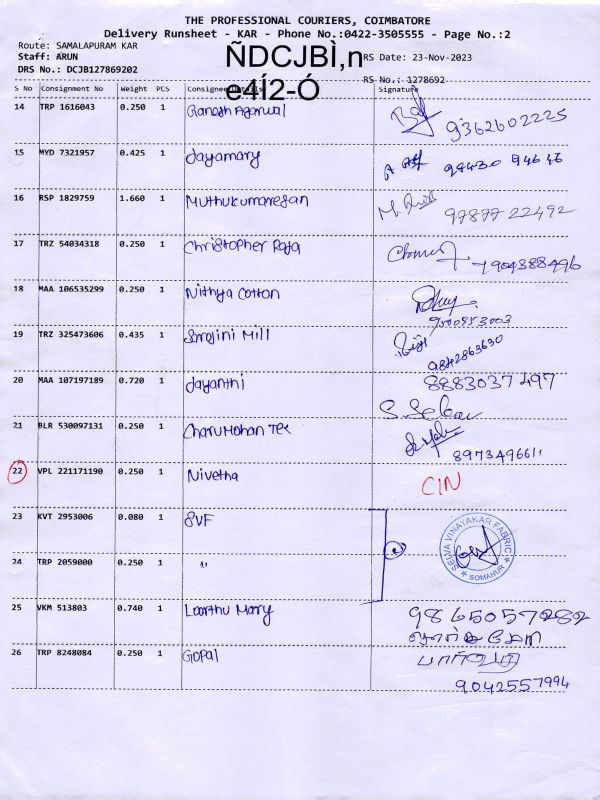 THE PROFESSIONAL COURIERS, COIMBATORE
Delivery Runsheet - KAR - Phone No.:0422-3505555 - Page No.:2
Route: SAMALAPURAM KAR
ÑDCJBÌ,n
Staff: ARUN RS Date: 23-Nov-2023
DRS No.: DCJB127869202 RS No.: 1278692
e4Í2-Ó
S No Consignment No Weight PCS Consignee Details Signature
14 TRP 1616043 0.250 1 Ganesh Agarwal 9362602225
15 MYD 7321957 0.425 1 Jayamary 94430 94646
16 RSP 1829759 1.660 1 Muthukumaresan 97877 22492
17 TRZ 54034318 0.250 1 Christopher Raja 7904388496
18 MAA 106535299 0.250 1 Nithya Cotton 9500953003
19 TRZ 325473606 0.435 1 Sarojini Mill 9842863630
20 MAA 107197189 0.720 1 Jayanthi 8883037 497
S. Sekar
21 BLR 530097131 0.250 1 Charu Mohan Tex 8973496611
22 VPL 221171190 0.250 1 Nivetha C/N
23 KVT 2953006 0.080 1 SVF
SELVA VINAYAKAR FABRIC
SOMANUR
24 TRP 2059000 0.250 1 "
25 VKM 513803 0.740 1 Loorthu Mary 9865057282
26 TRP 8248084 0.250 1 Gopal பார்வதி
9042557994